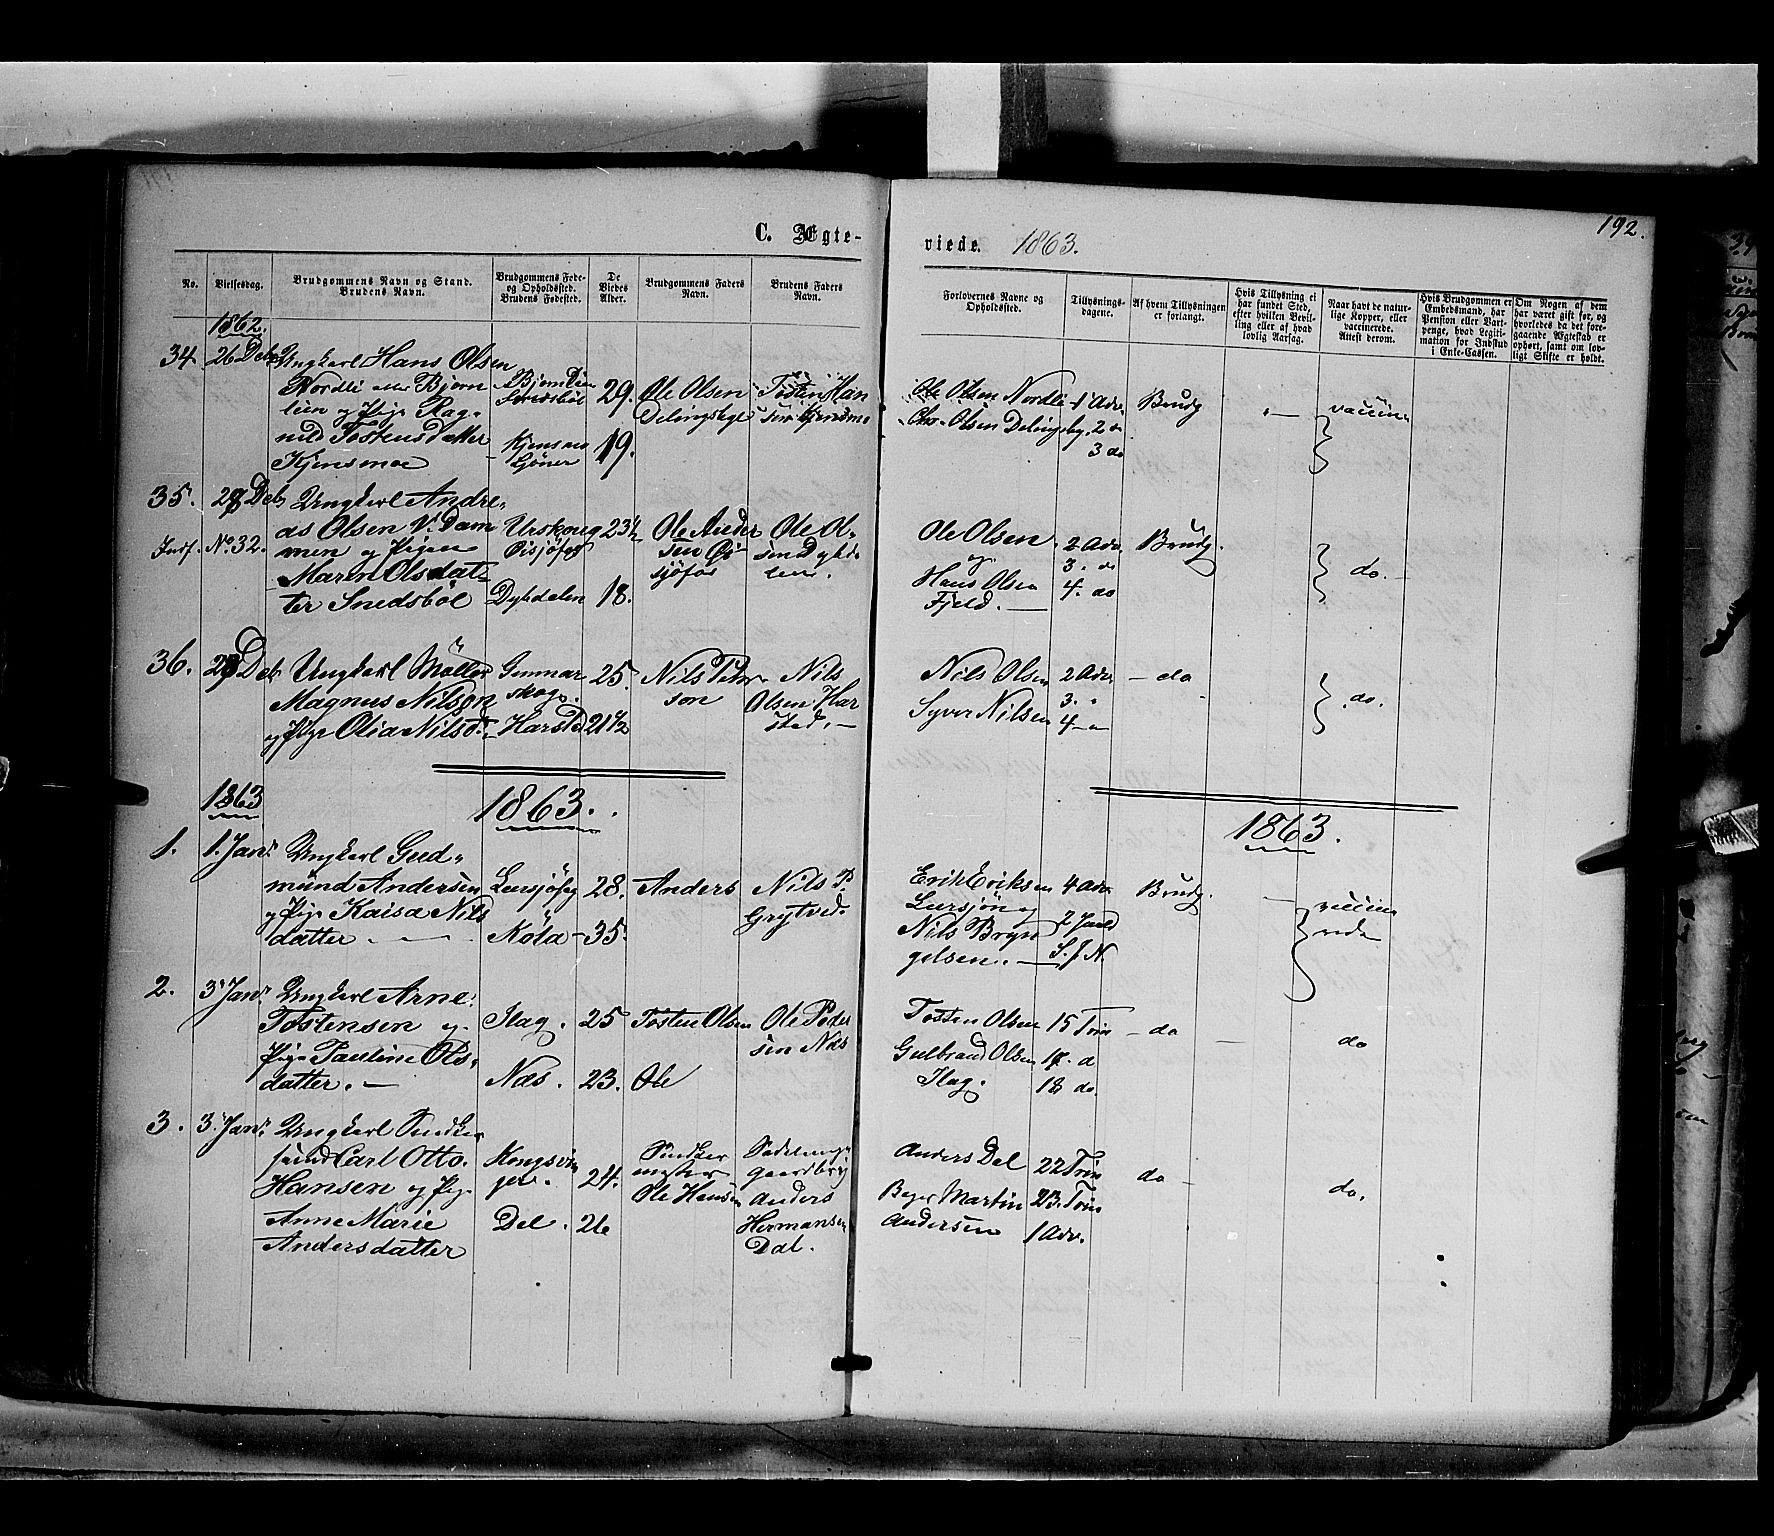 192.
C. Ægte-
viede. 1863.
No.
Vielsesdag.
Brudgommens Navn og Stand.
Brudens Navn.
Brudgommens Føde-
og Opholdssted.
Brudens Fødested.
De
Viedes
Alder.
Brudgommens Faders
Navn.
Brudens Faders
Navn.
Forlovernes Navne og
Opholdssted.
Tillysnings-
dagene.
Af hvem Tillysningen
er forlangt.
Hvis Tillysning ei
har fundet Sted,
efter hvilken Bevil-
ling eller af hvad
lovlig Aarsag.
Naar havt de natur-
lige Kopper, eller
vaccinerede.
Attest derom.
Hvis Brudgommen er
Embedsmand, har
Pension eller Vart-
penge, hvad Legiti-
mation for Indskud
i Enke-Cassen.
Om Nogen af dem
har været gift før, og
hvorledes da det fore-
gaaende Ægteskab er
ophørt, samt om lov-
ligt Skifte er holdt.
1862.
34. 26 Deb
Ungkarl Hans Olsen
Nordli eller Bjørn
lien og Pige Rag-
nild Tostensdatter
Kjensmoe
Snedsbøl
Kjensmo
29.
19.
Ole Olsen
Tosten Han
sen Kjensmo
Ole Olsen Nordli
Olsen
1 Adv.
2 "
3 do
Brudg
vaccine
35. Deb
Indf. No. 32.
Ungkarl Andre-
as Olsen V. Dam
men og Pigen
Maren Olsdat-
ter Snedsbøl
Urskoug
Dyhdalen
23½
18.
Ole Ander
sen
Ole Ol-
sen
Ole Olsen
og
Hans Olsen
Fjeld.
2 Adv
3. do
4. do
Brudg.
do.
36. Deb
Ungkarl Møller
Magnus Nilsen
og Pige Olia Nilsd.
Gunnar
skog.
Harstd
25.
21½
Nils Peter
son
Nils
Olsen Har
sted.
Nils Olsen
Syver Nilsen
2 Adv
3. "
4 "
do
do.
1863
1863.
1863.
1. 1. Janr
Ungkarl Gud-
mund Andersen
og Pige Kaisa Nils
datter.
Lersjøfg
Köla
28.
35.
Anders
Nils P.
Grytved.
Erik Eriksen
Lersjøn og
Nils Bryn
gelsen.
4 Adv
2 Juld
S. f N.
Brudg.
vaccine
rede
2. 3 Janr
Ungkarl Arne
Tostensen og
Pige Pauline Ols-
datter.
Slag.
Næs.
25
23.
Tosten Olsen
Ole
Ole Peder
sen Næs
Tosten Olsen
Gulbrand Olsen
Slag.
15 Trin
17. d
18 do.
do
do
3. 3 Janr
Ungkarl
Carl Otto
Hansen og Pige
Anne Marie
Andersdatter
Kongsvin
ger.
Del.
24.
26
Ole Hansen
Anders
Hermansen
Dal.
Anders Del
Martin
Andersen
22 Trin
23. Trin
1 Adv.
do
do.